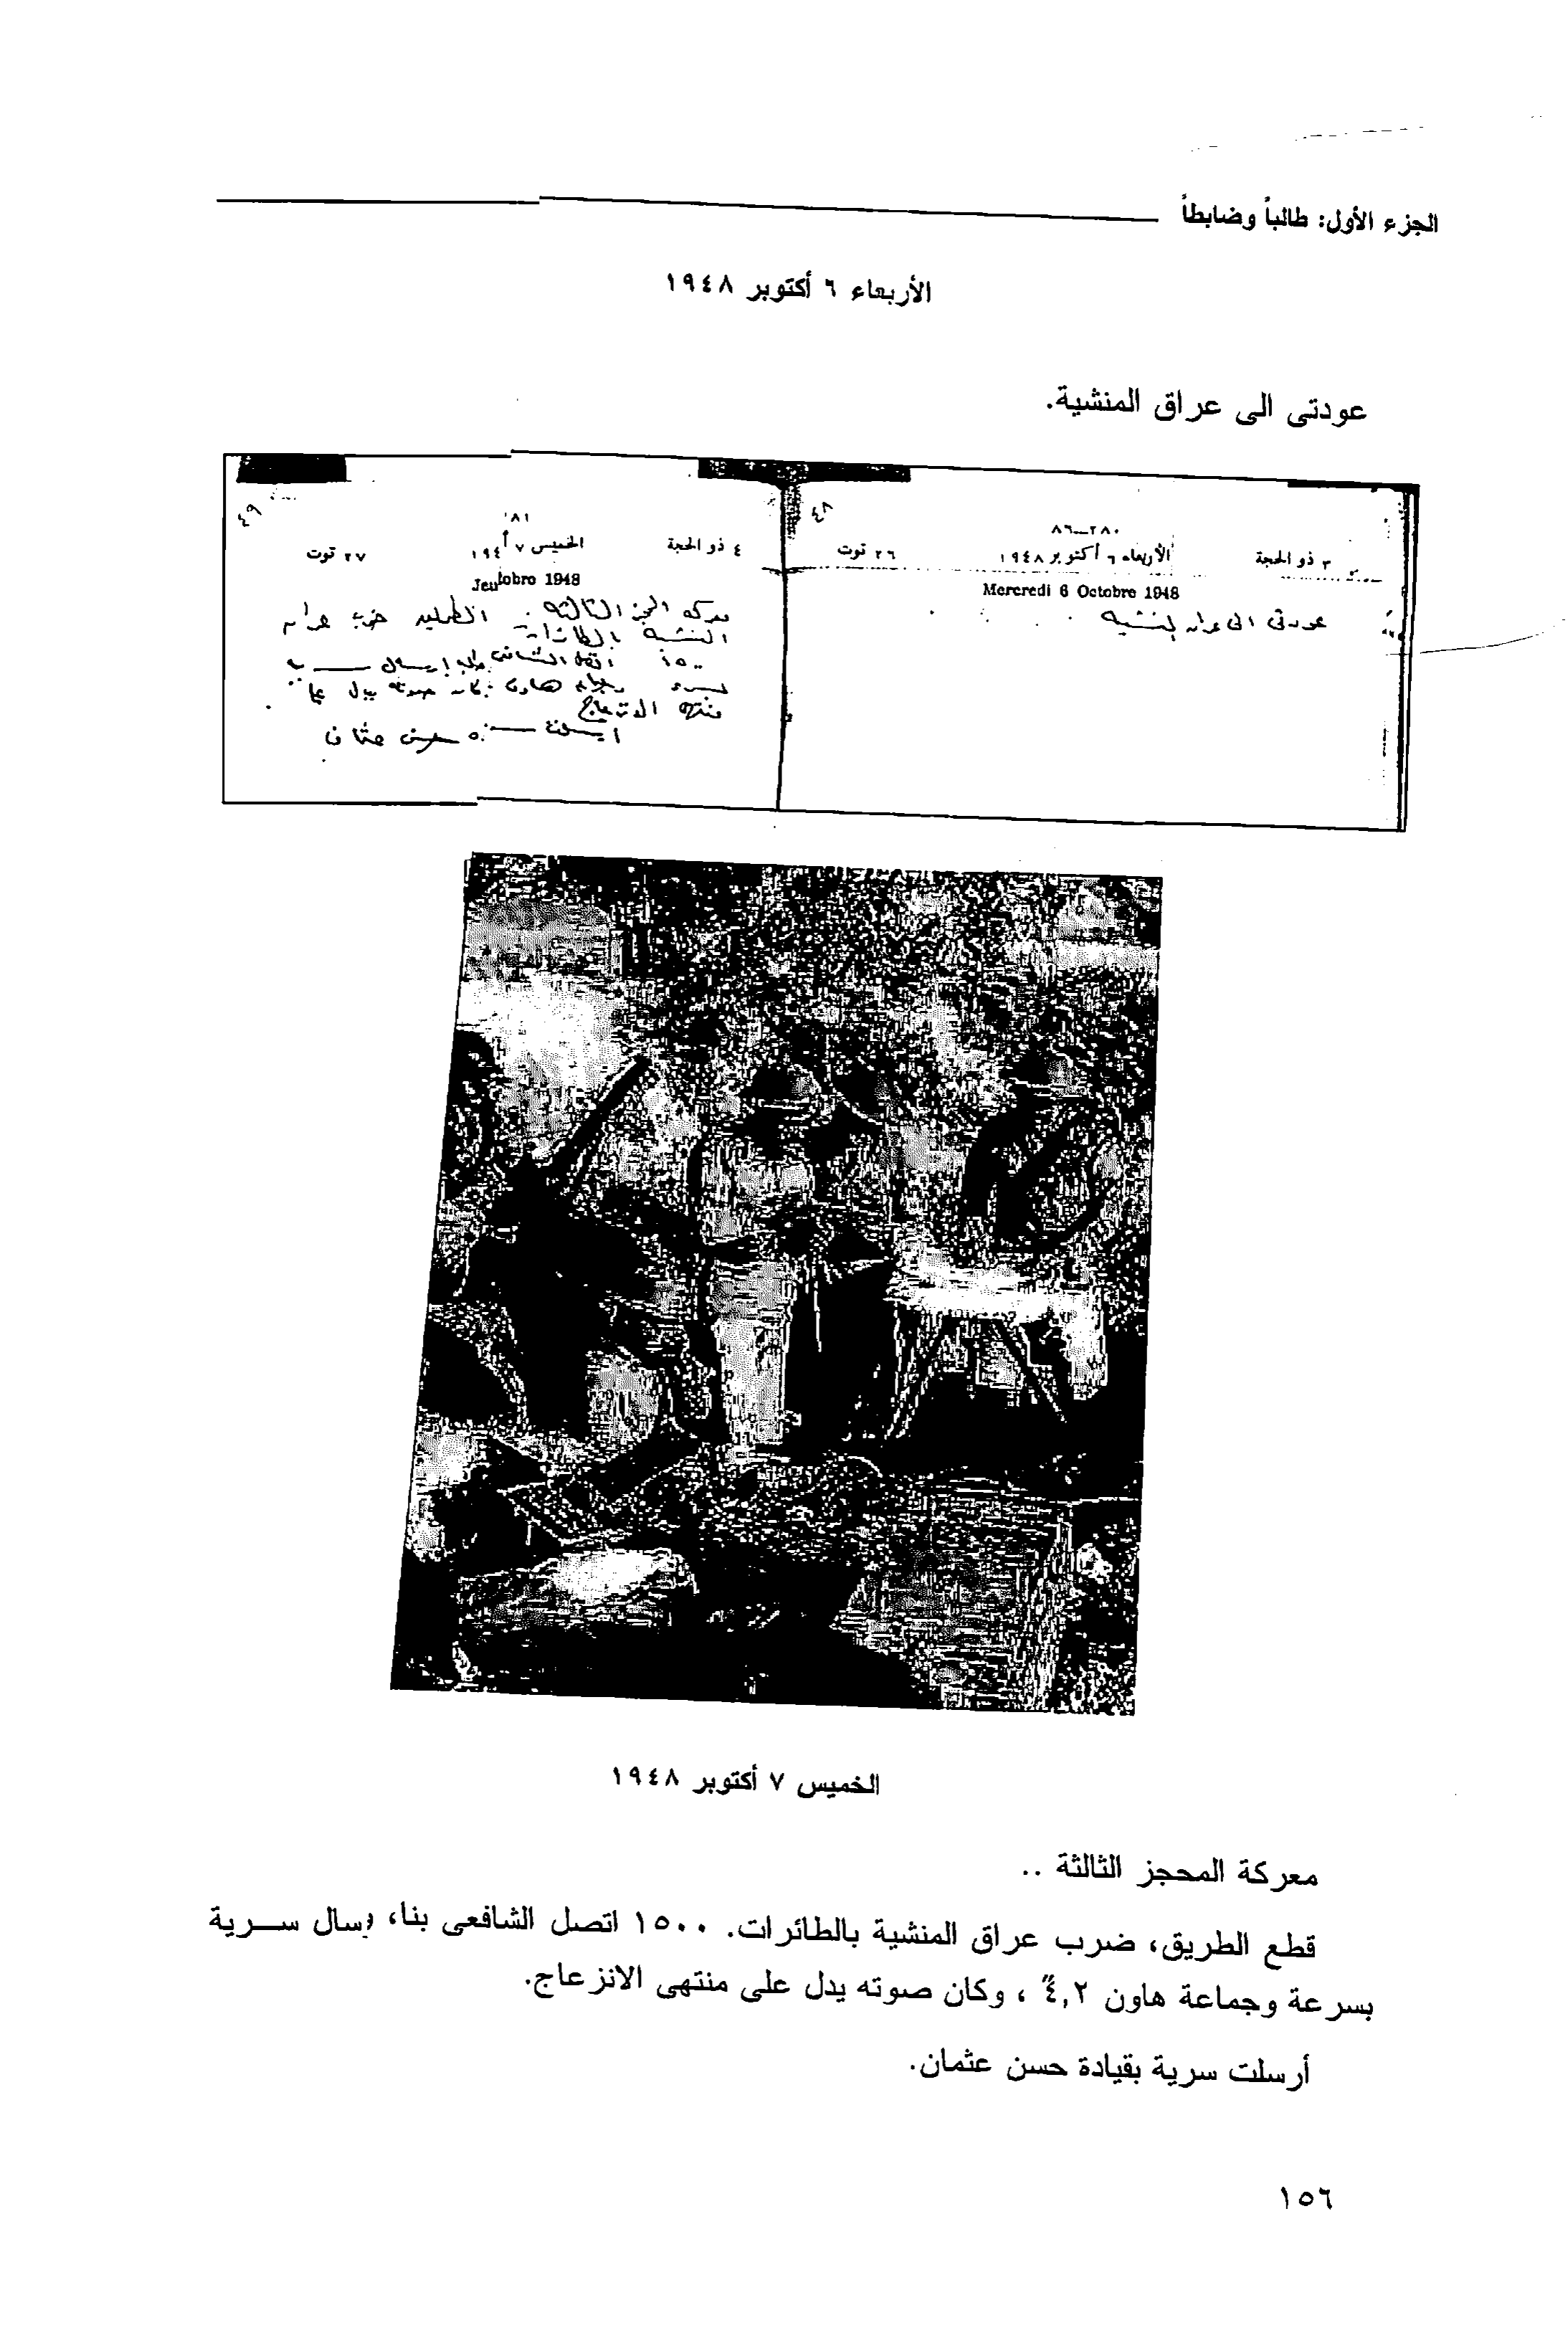 الجزء الأول: طالباً وضابطاً
الأربعاء ٦ أكتوبر ١٩٤٨
عودتى الى عراق المنشية.
٤٨
٢٨٠–٨٦
٣ ذو الحجة الأربعاء ٦ أكتوبر ١٩٤٨ ٢٦ توت
Mercredi 6 Octobre 1948
عودتى الى عراق المنشيه
٤٩
٤ ذو الحجة الخميس ٧ ٢٧ توت
Jeu tobre 1948
معركه المحجز الثالثه . الطريق ضرب عراق
المنشيه بالطائرات
١٥٠٠ اتصل الشافعى ارسال
هاون وكان صوته يدل على
منتهى الانزعاج
ارسلت حسن عثمان
الخميس ٧ أكتوبر ١٩٤٨
معركة المحجز الثالثة ..
قطع الطريق، ضرب عراق المنشية بالطائرات. ١٥٠٠ اتصل الشافعى بنا، سال ســرية
بسرعة وجماعة هاون ٤,٢ً ، وكان صوته يدل على منتهى الانزعاج.
أرسلت سرية بقيادة حسن عثمان.
١٥٦